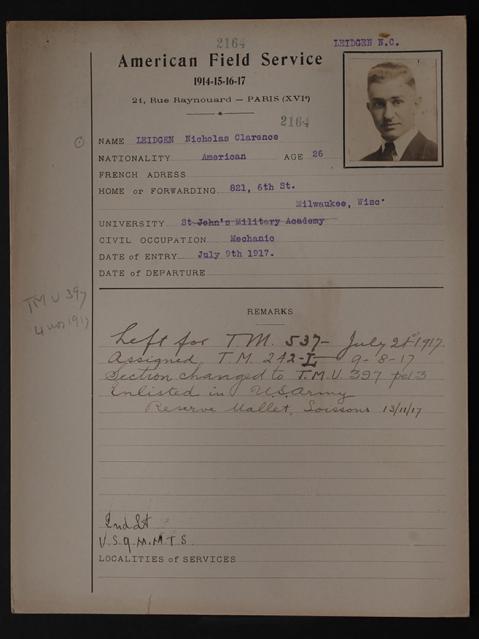 2164
LEIDGEN N.C.
American Field Service
1914-15-16-17
21, Rue Raynouard — PARIS (XVIe)
2164
NAME LEIDGEN Nicholas Clarence
NATIONALITY American AGE 26
FRENCH ADRESS
HOME or FORWARDING 821, 6th St.
Milwaukee, Wisc'
UNIVERSITY St John's Military Academy
CIVIL OCCUPATION Mechanic
DATE of ENTRY July 9th 1917.
DATE of DEPARTURE
TMU 397
4 nov 1917
REMARKS
Left for TM. 537- July 1917.
Assigned T.M. 242-I 9-8-17
Section changed to T.M.U. 397
Enlisted in U.S. Army
Reserve Mallet, Soissons 13/11/17
2nd Lt
U.S.Q.M.M.T.S.
LOCALITIES of SERVICES